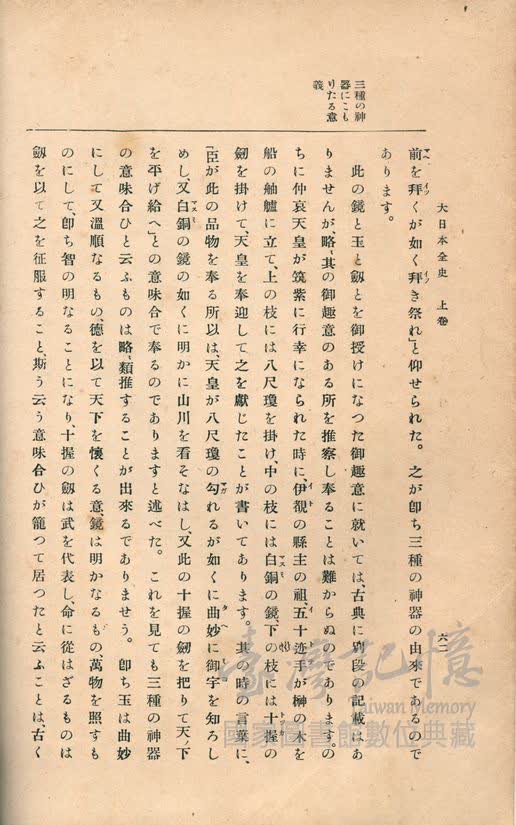 大日本全史　上卷
六二
三種の神
器にこも
りたる意
義
前を拜くが如く拜き祭れ」と仰せられた。之が卽ち三種の神器の由來であるので
あります。
此の鏡と玉と劔とを御授けになつた御趣意に就いては、古典に別段の記載はあ
りませんが、略〻其の御趣意のある所を推察し奉ることは難からぬのであります。の
ちに仲哀天皇が筑紫に行幸になられた時に、伊覩の縣主の祖、五十迹手が榊の木を
船の舳艫に立て、上の枝には八尺瓊を掛け中の枝には白銅の鏡、下の枝には十握の
劔を掛けて、天皇を奉迎して之を獻じたことが書いてあります。其の時の言葉に、
「臣が此の品物を奉る所以は、天皇が八尺瓊の勾れるが如くに曲妙に御宇を知ろし
めし、又白銅の鏡の如くに明かに山川を看そなはし、又此の十握の劔を把りて天下
を平げ給へ」との意味合で奉るのでありますと述べた。これを見ても三種の神器
の意味合ひと云ふものは略〻類推することが出來るでありませう。卽ち玉は曲妙
にして又溫順なるもの、德を以て天下を懷くる意、鏡は明かなるもの、萬物を照すも
のにして、卽ち智の明なることになり、十握の劔は武を代表し、命に從はざるものは
劔を以て之を征服すること、斯う云う意味合ひが籠つて居つたと云ふことは、古く
臺灣記憶
Taiwan Memory
國家圖書館數位典藏